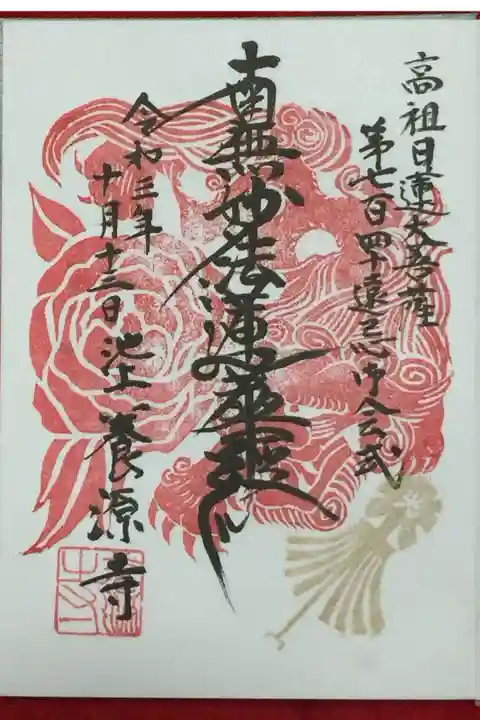 高祖日蓮大菩薩
第七百四十遠忌御会式
南無妙法蓮華経
令和三年
十月十三日 池上 養源寺